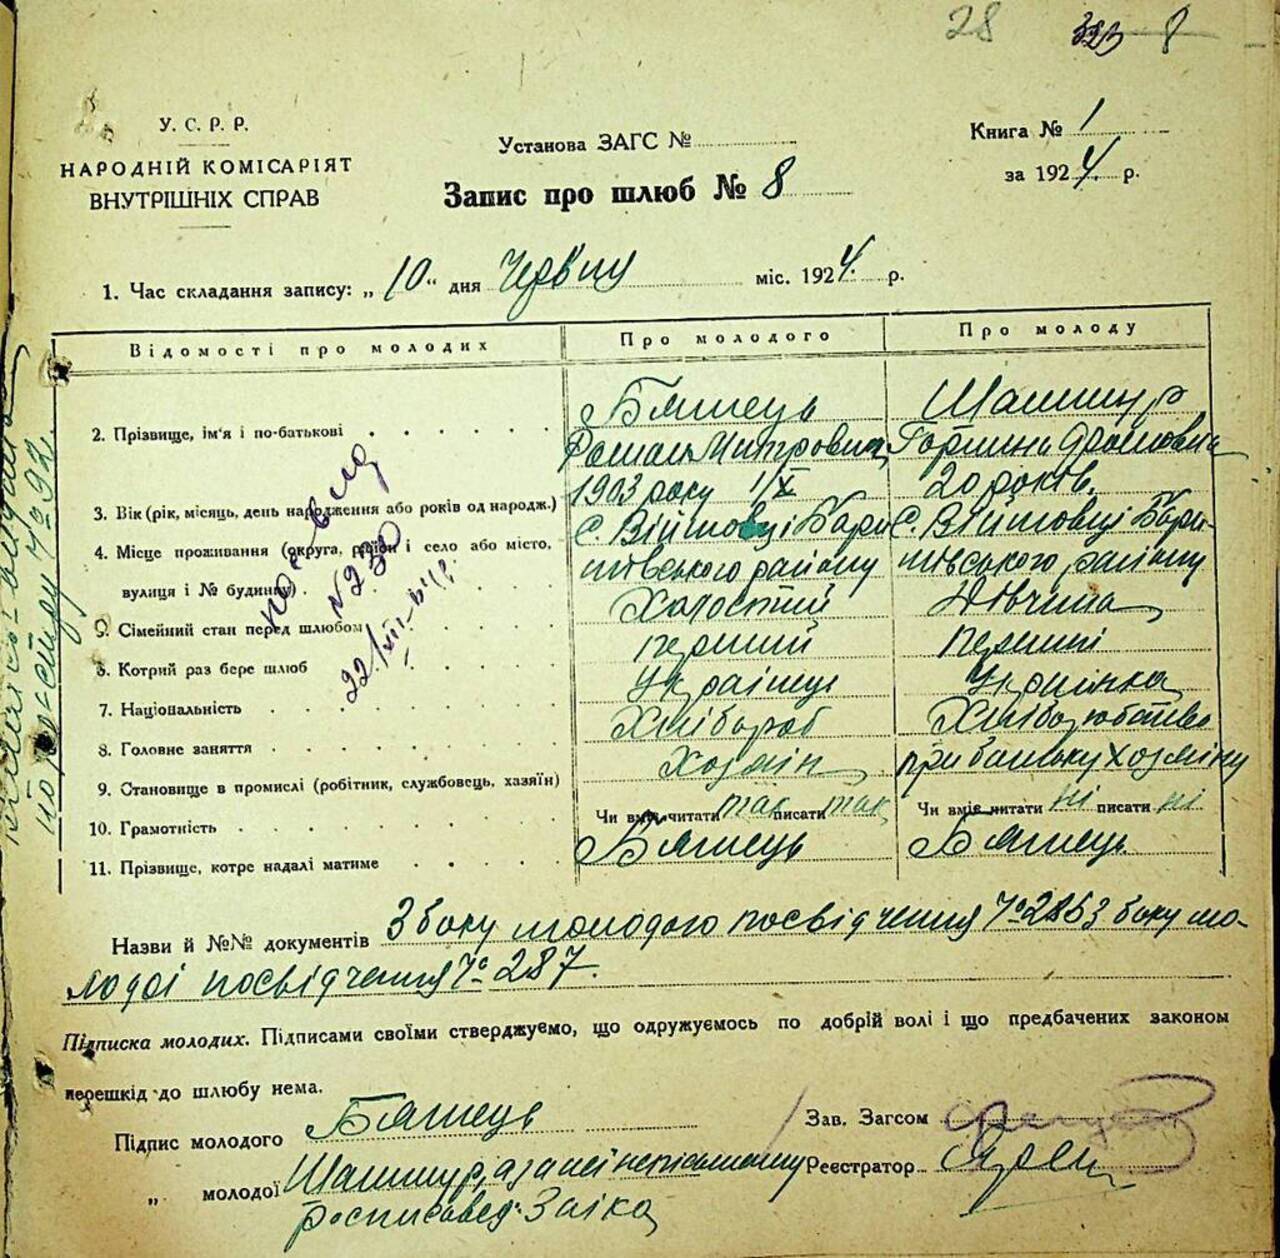 28 323 8
У. С. Р. Р.
НАРОДНІЙ КОМІСАРІЯТ
ВНУТРІШНІХ СПРАВ
Установа ЗАГС №
Запис про шлюб № 8
Книга № 1
за 1924. р.
1. Час складання запису: „ 10 " дня Черв'ця міс. 1924. р.
Відомості про молодих
Про молодого
Про молоду
2. Прізвище, ім'я і по-батькові
Роман Митрович
3. Вік (рік, місяць, день народження або років од народж.)
1903 року 1/X
20 років.
4. Місце проживання (округа, район і село або місто,
вулиця і № будинку)
с. Війтовці Бари
шівського району
с. Війтовці Бари-
шівського району
5. Сімейний стан перед шлюбом
Холостий
Дівчина
6. Котрий раз бере шлюб
перший
перший
7. Національність
Українець
Українка
8. Головне заняття
Хлібороб
9. Становище в промислі (робітник, службовець, хазяїн)
Хозяїн
при батьку хозяїну
10. Грамотність
Чи вміє читати так писати так
Чи вміє читати ні писати ні
11. Прізвище, котре надалі матиме
№ 230
22/VII
Назви й №№ документів З боку молодого посвідчення № 286 З боку мо-
лодої посвідчення № 287.
Підписка молодих. Підписами своїми стверджуємо, що одружуємось по добрій волі і що предбачених законом
перешкід до шлюбу нема.
Підпис молодого
„ молодої Шашмур, а за неї неписьменну
росписавсь: Заіка
Зав. Загсом
Реєстратор